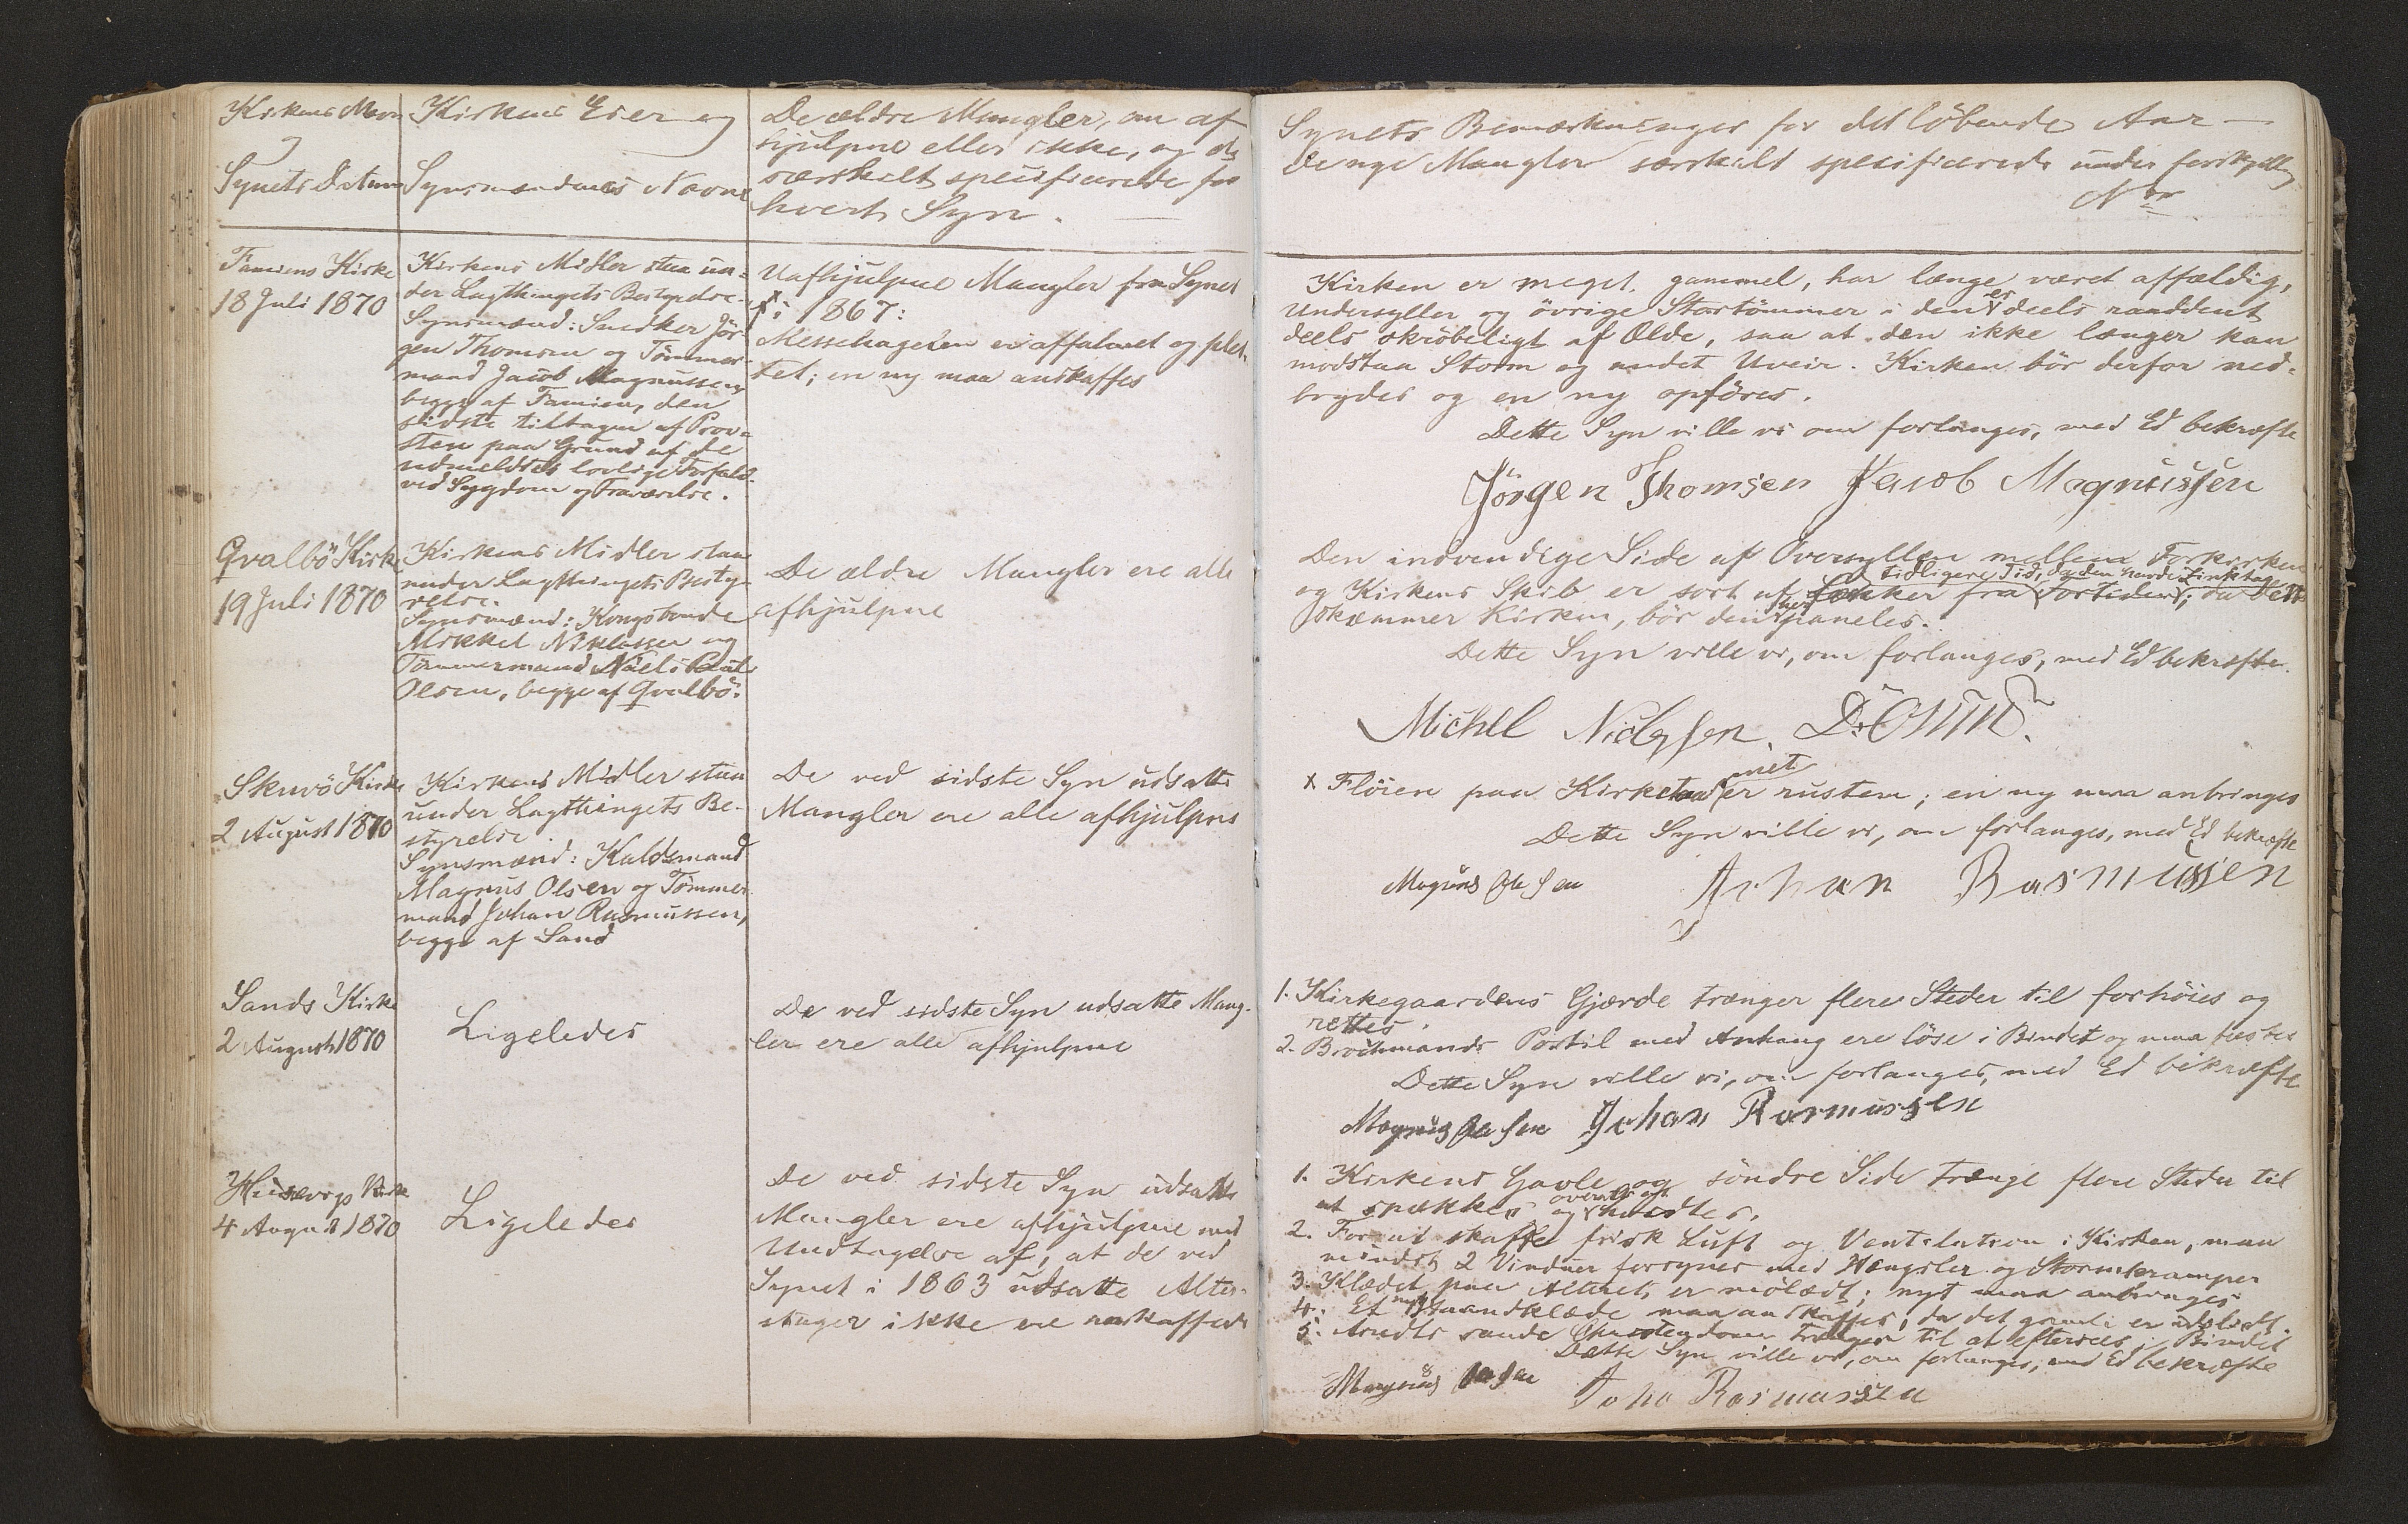 Kirkens Navn
og
Synets Datum
Kirkens Eier og
Synsmændenes Navne
De ældre Mangler, om af
hjulpne eller ikke, og de
særskilt specificerede for
hvert Syn.
Synets Bemærkninger for det löbende Aar —
de nye Mangler særskilt specificerede under forskjellig
N<sup>er</sup>
Famiens Kirke
18 Juli 1870
Kirkens Midler staa un-
der Lagthingets Bestyrelse.
Synsmænd: Snedker Jör-
gen Thomsen og Tömmer-
mand Jacob Magnussen,
begge af Famien, den
sidste tiltagen af Prov-
sten paa Grund af de
udmeldtes lovlige Forfald
ved Sygdom og Fraværelse.
Uafhjulpne Mangler fra Synet
i 1867:
Messehagelen er affalmet og plet-
tet; en ny maa anskaffes
Kirken er meget gammel, har længe været affældig,
Undersyller og övrige Stortömmer i den er deels raaddent
deels skröbeligt af Ælde, saa at den ikke længer kan
modstaa Storm og andet Uveir. Kirken bör derfor ned-
brydes og en ny opföres.
Dette Syn ville vi om forlanges, med Ed bekræfte
Jörgen Thomsen Jacob Magnussen
Qvalbö Kirke
19 Juli 1870
Kirkens Midler staa
under Lagthingets Besty-
relse.
Synsmænd: Kongsbonde
Mikkel Niklassen og
Tömmermand Niels Poul
Olsen, begge af Qvalbö.
De ældre Mangler ere alle
afhjulpne
Den indvendige Side af Oversyllen mellem Forkirken
tidligere Tid, da den havde
og Kirkens Skib er sort af fra Fortiden; da dette
skæmmer Kirken, bör den her paneles.
Dette Syn ville vi, om forlanges, med Ed bekræfte.
Michel
Skuö Kirke
2 August 1870
Kirkens Midler staa
under Lagthingets Be-
styrelse
Synsmænd: Kaldsmand
Magnus Olsen og Tömmer-
mand Johan Rasmussen,
begge af Sand
De ved sidste Syn udsatte
Mangler ere alle afhjulpne
x Flöien paa Kirketaarnet er rusten; en ny maa anbringes
Dette Syn ville vi, om forlanges, med Ed bekræfte
Magnus Olesen Johan Rasmussen
Sands Kirke
2 August 1870
Ligeledes
De ved sidste Syn udsatte Mang-
ler ere alle afhjulpne
1. Kirkegaardens Gjærde trænger flere Steder til forhöies og
rettes.
2. Brochmands Postil med Anhang ere löse i Bindet og maa fæstes
Dette Syn ville vi, om forlanges, med Ed bekræfte
Magnus Olesen Johan Rasmussen
Husevigs Kirke
4 August 1870
Ligeledes
De ved sidste Syn udsatte
Mangler ere afhjulpne med
Undtagelse af, at de ved
Synet i 1863 udsatte Alter-
stager ikke ere anskaffede
1. Kirkens Gavle og söndre Side trænge flere Steder til
at spækkes og overalt at
2. For at skaffe frisk Luft og Ventilation i Kirken, maa
mindst 2 Vinduer forsynes med Hængsler og Stormkramper
3. Klædet paa Alteret er mölædt; nyt maa anbringes
4. Et nyt Haandklæde maa anskaffes, da det gamle er udslidt.
5. Arndts sande Christendom trænger til at efterseees i Bindet
Dette Syn ville vi, om forlanges, med Ed bekræfte
Magnus Olesen Joha Rasmussen